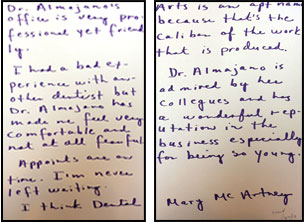 Dr. Almajano's
office is very pro-
fessional yet friend
ly.
I had a bad ex-
perience with an-
other dentist but
Dr. Almajano has
made me feel very
comfortable and
not at all fearful.
Appoints are on
time. I'm never
left waiting.
I think Dental
Arts is an apt name
because that's the
caliber of the work
that is produced.
Dr. Almajano is
admired by her
collegues and has
a wonderful rep-
utation in the
business especially
for being so young.
Mary McArtney